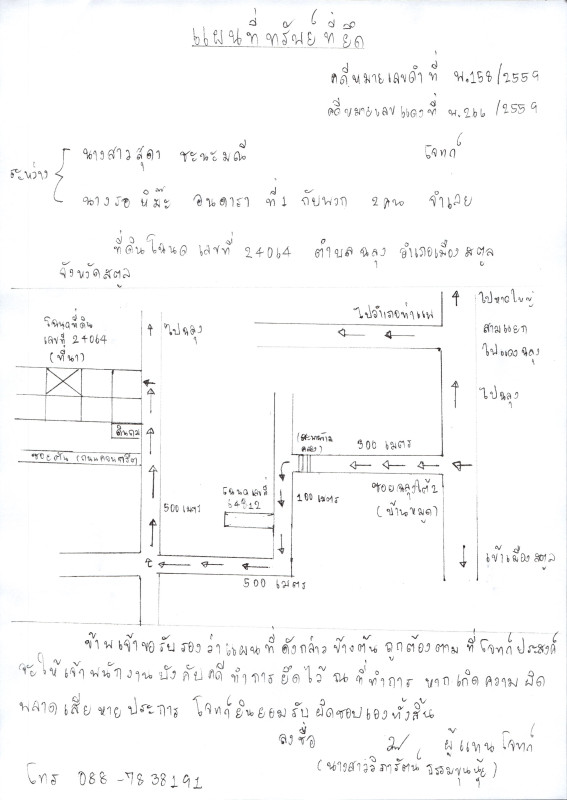 แผนที่ทรัพย์ที่ยึด
คดีหมายเลขดำที่ พ.158/2559
คดีหมายเลขแดงที่ พ.266/2559
ระหว่าง
นางสาวสุดา ชะนะมณี โจทก์
นางรอหิม๊ะ อนดารา ที่1 กับพวก 2คน จำเลย
ที่ดินโฉนด เลขที่ 24064 ตำบลฉลุง อำเภอเมืองสตูล
จังหวัดสตูล
โฉนดที่ดิน
เลขที่ 24064
(ที่นา)
ไปฉลุง
ไปอำเภอท่าแพ
ไปหาดใหญ่
สามแยก
ไฟแดงฉลุง
ไปฉลุง
ดินถม
ซอยตัน (ถนนคอนกรีต)
(สะพานข้าม
คลอง)
300 เมตร
100 เมตร
ซอยฉลุงใต้2
(บ้านขมูด)
500 เมตร
โฉนดเลขที่
64312
500 เมตร
เข้าเมืองสตูล
ข้าพเจ้าขอรับรองว่าแผนที่ดังกล่าวข้างต้น ถูกต้องตาม ที่โจทก์ประสงค์
จะให้เจ้าพนักงานบังคับคดีทำการยึดไว้ ณ ที่ทำการ หากเกิดความผิด
พลาดเสียหายประการ โจทก์ยินยอมรับผิดชอบเองทั้งสิ้น
ลงชื่อ ผู้แทนโจทก์
(นางสาววิภารัตน์ ธรรมขุนนุ้ย)
โทร 088-7838191